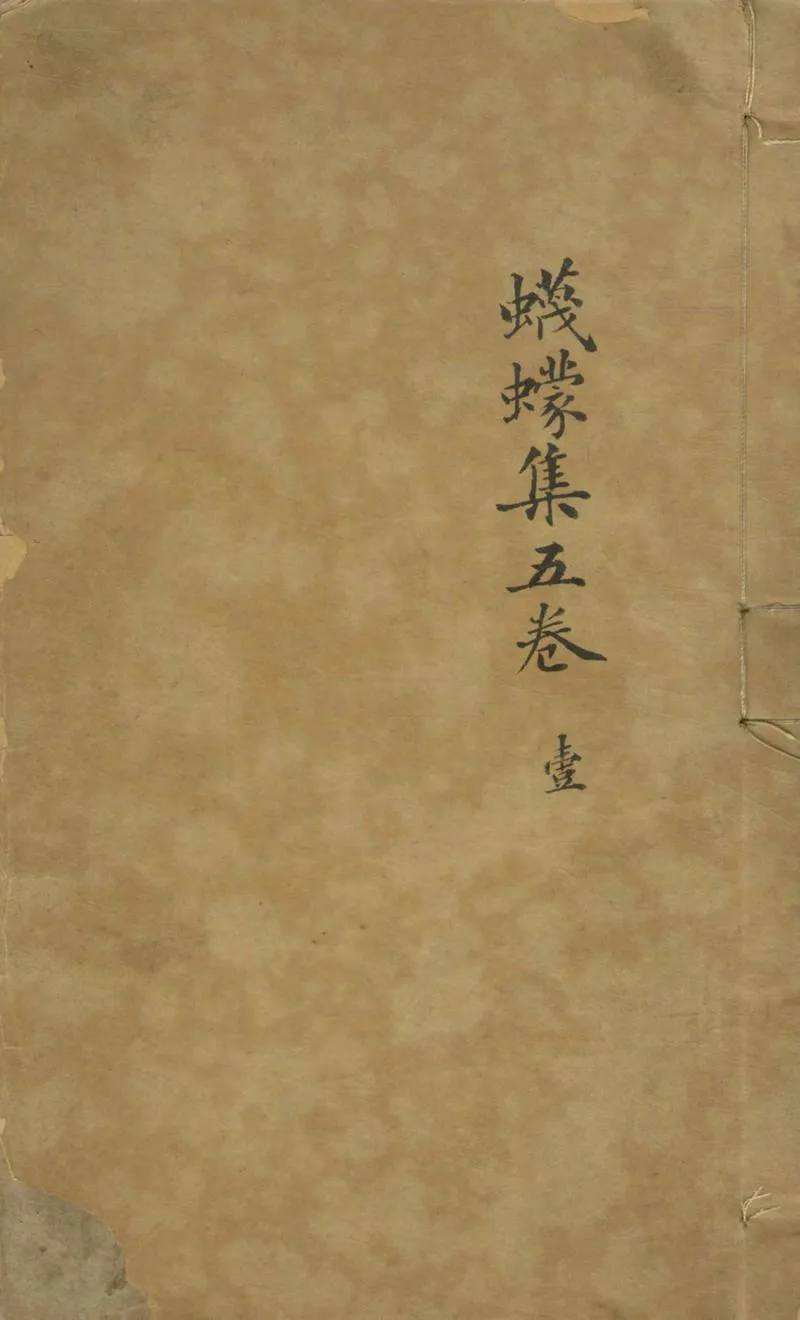 蠛蠓集五卷 壹